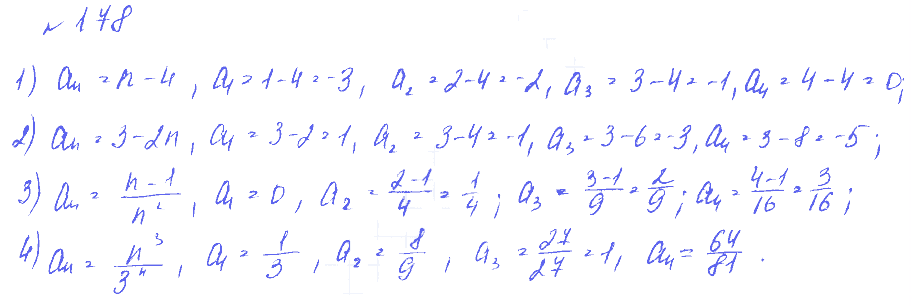 № 178
1) aₙ = n - 4, a₁ = 1 - 4 = -3, a₂ = 2 - 4 = -2, a₃ = 3 - 4 = -1, a₄ = 4 - 4 = 0;
2) aₙ = 3 - 2n, a₁ = 3 - 2 = 1, a₂ = 3 - 4 = -1, a₃ = 3 - 6 = -3, a₄ = 3 - 8 = -5;
3) aₙ = (n - 1)/n², a₁ = 0, a₂ = (2 - 1)/4 = 1/4; a₃ = (3 - 1)/9 = 2/9; a₄ = (4 - 1)/16 = 3/16;
4) aₙ = n³/3ⁿ, a₁ = 1/3, a₂ = 8/9, a₃ = 27/27 = 1, a₄ = 64/81.